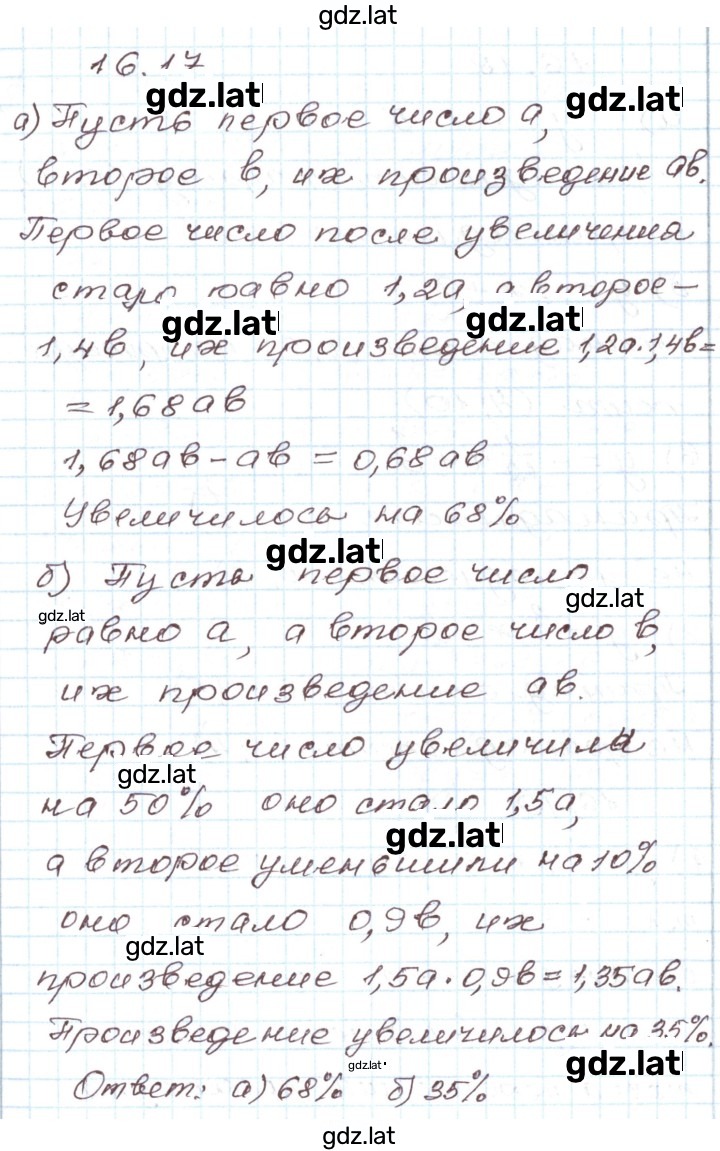 gdz.lat
16.17
gdz.lat gdz.lat
а) Пусть первое число а,
второе в, их произведение ав.
Первое число после увеличения
стало равно 1,2а, а второе –
gdz.lat gdz.lat
1,4в, их произведение 1,2а·1,4в=
= 1,68ав
1,68ав – ав = 0,68ав
Увеличилось на 68%
gdz.lat
б) Пусть первое число
gdz.lat
gdz.lat
равно а, а второе число в,
их произведение ав.
Первое число увеличили
gdz.lat
на 50% оно стало 1,5а,
gdz.lat
а второе уменьшили на 10%
оно стало 0,9в, их
gdz.lat
произведение 1,5а·0,9в=1,35ав.
Произведение увеличилось на 35%.
gdz.lat gdz.lat
Ответ: а) 68% б) 35%
gdz.lat